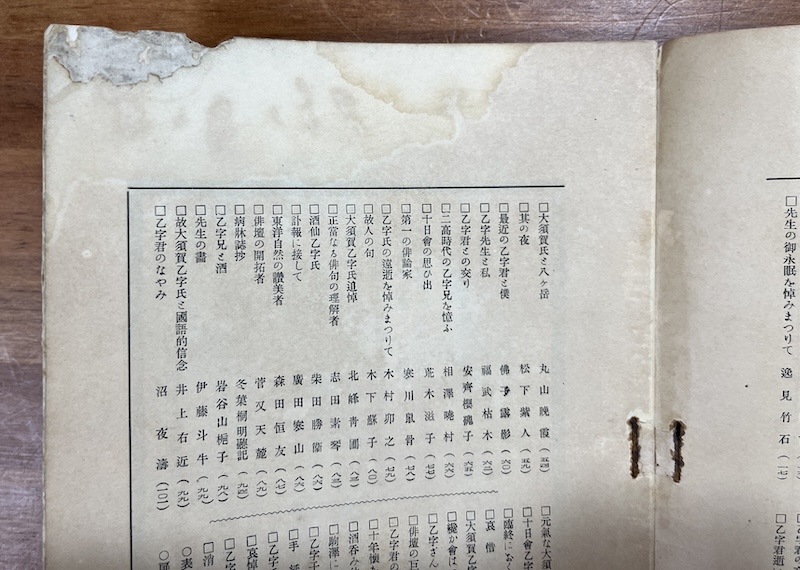 □先生の御永眠を悼みまつりて 逸見竹石 (一七)
□大須賀氏と八ヶ岳 丸山晩霞 (五四)
□其の夜 松下紫人 (五九)
□最近の乙字君と僕 佛子露影 (六〇)
□乙字先生と私 福武枯木 (六三)
□乙字君との交り 安齊櫻磈子 (六五)
□二高時代の乙字兄を憶ふ 相澤曉村 (六六)
□十日會の思ひ出 荒木滋子 (七七)
□第一の俳論家 寒川鼠骨 (七八)
□乙字氏の遠逝を悼みまつりて 木村卯之 (七九)
□故人の句 木下蘇子 (八〇)
□大須賀乙字氏追悼 北蜂青圃
□正當なる俳句の理解者 志田素琴
□酒仙乙字氏 柴田勝衞 (八六)
□訃報に接して 廣田寒山 (八六)
□東洋自然の讃美者 森田恒友 (八七)
□俳壇の開拓者 菅又天麓 (八九)
□病牀誌抄 冬葉桐明聽記
□乙字兄と酒 岩谷山梔子 (九八)
□先生の畵 伊藤斗牛 (九九)
□故大須賀乙字氏と國語的信念 井上右近 (九九)
□乙字君のなやみ 沼夜濤 (一〇一)
□元氣な大須
□十日會乙字
□臨終にお
□哀惜
□大須賀乙字
□乙字さん
□俳壇の巨
□乙字君の
□十年懷
□酒呑み
□駒澤に
□乙字
□手紙
□乙字
□哀悼
□乙字
□消
○表